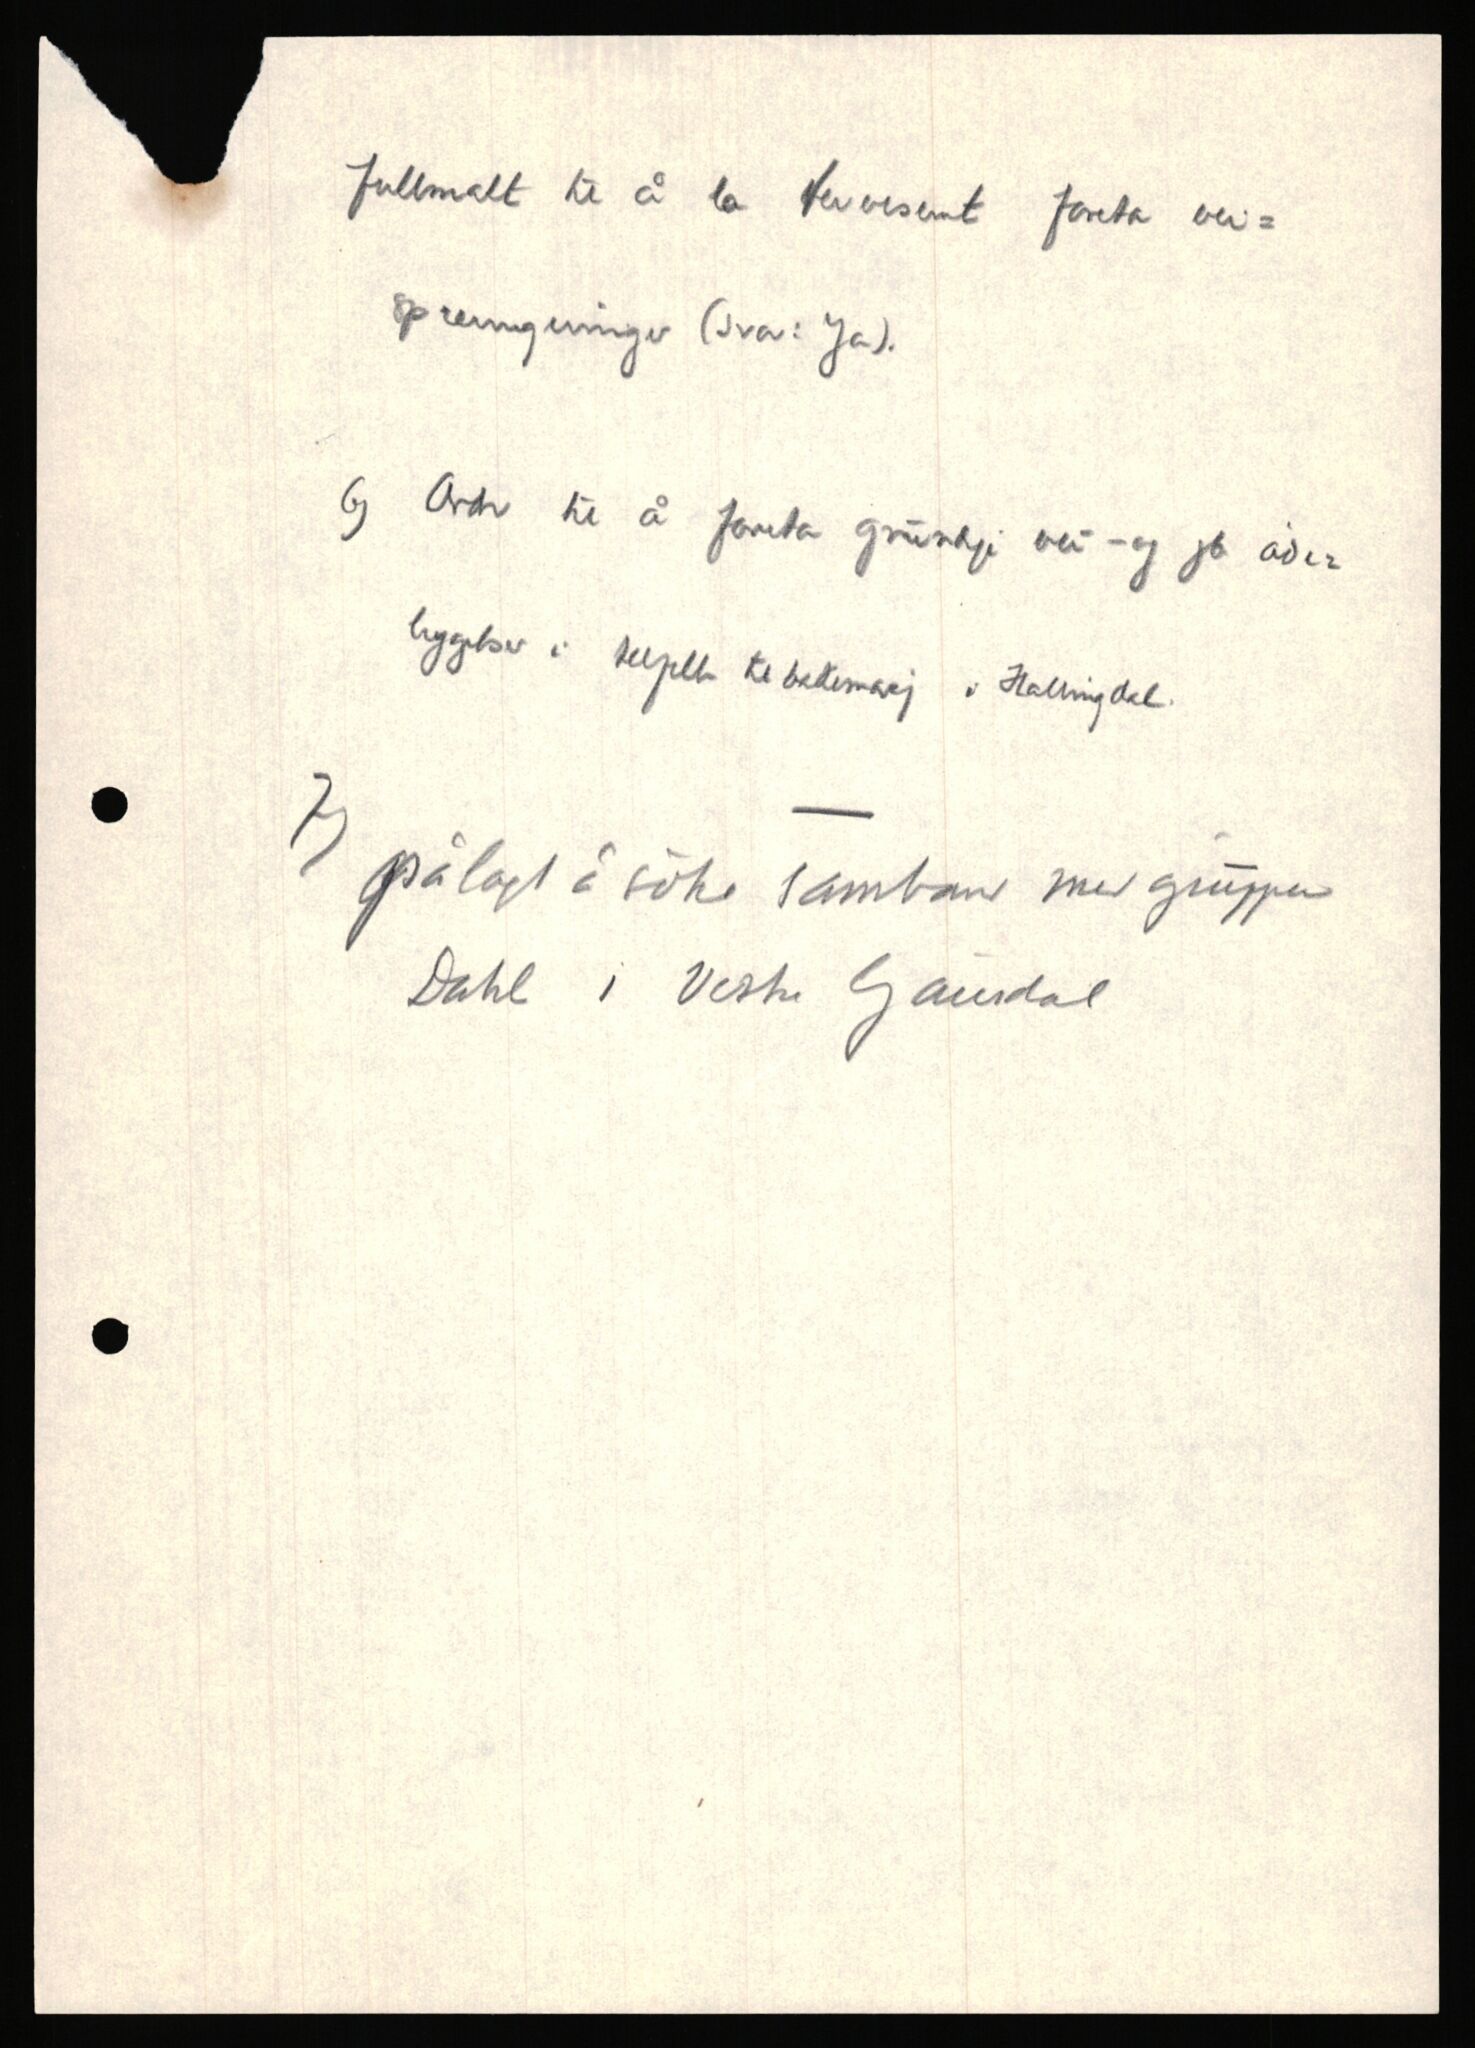 fullmakt til å la veivesenet foreta vei=
sprengninger (svar: Ja).
6) Ordre til å foreta grundige vei- og jb öde=
leggelser i tilfelle tilbakemarsj i Hallingdal.
7) pålagt å söke samband med gruppen
Dahl i Vestre Gausdal